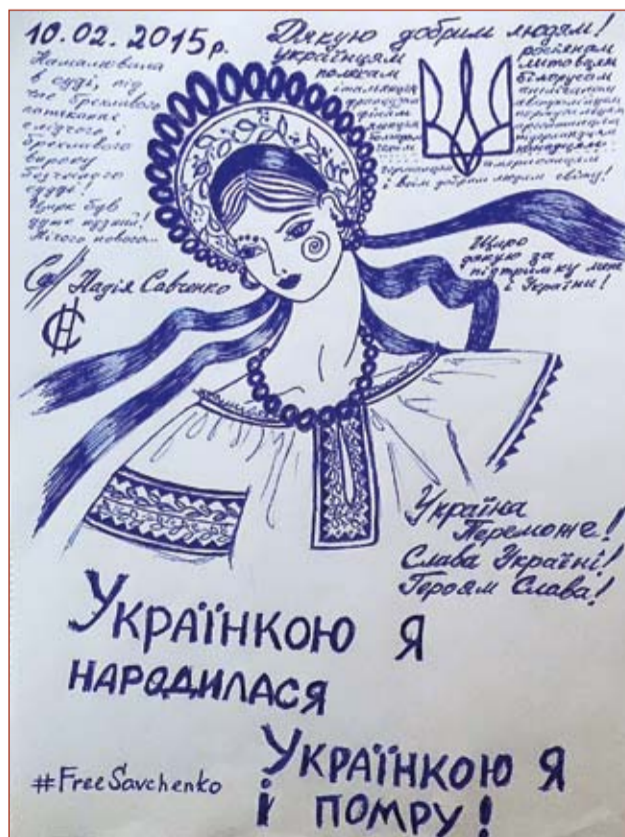 10.02.2015р.
Намалювала
в суді, під
час брехливого
слідчого і
брехливого
вироку
судді!
Цирк був
дуже нудний!
Нічого нового...
Надія Савченко
Дякую добрим людям!
українцям
полякам
італійцям
французам
фінам
чехам
росіянам
литовцям
білорусам
англійцям
австралійцям
канадцям
американцям
і всім добрим людям світу!
Щиро
дякую за
підтримку мене
і України!
Україна
Переможе!
Слава Україні!
Героям Слава!
Українкою я
народилася
Українкою я
і помру!
#FreeSavchenko